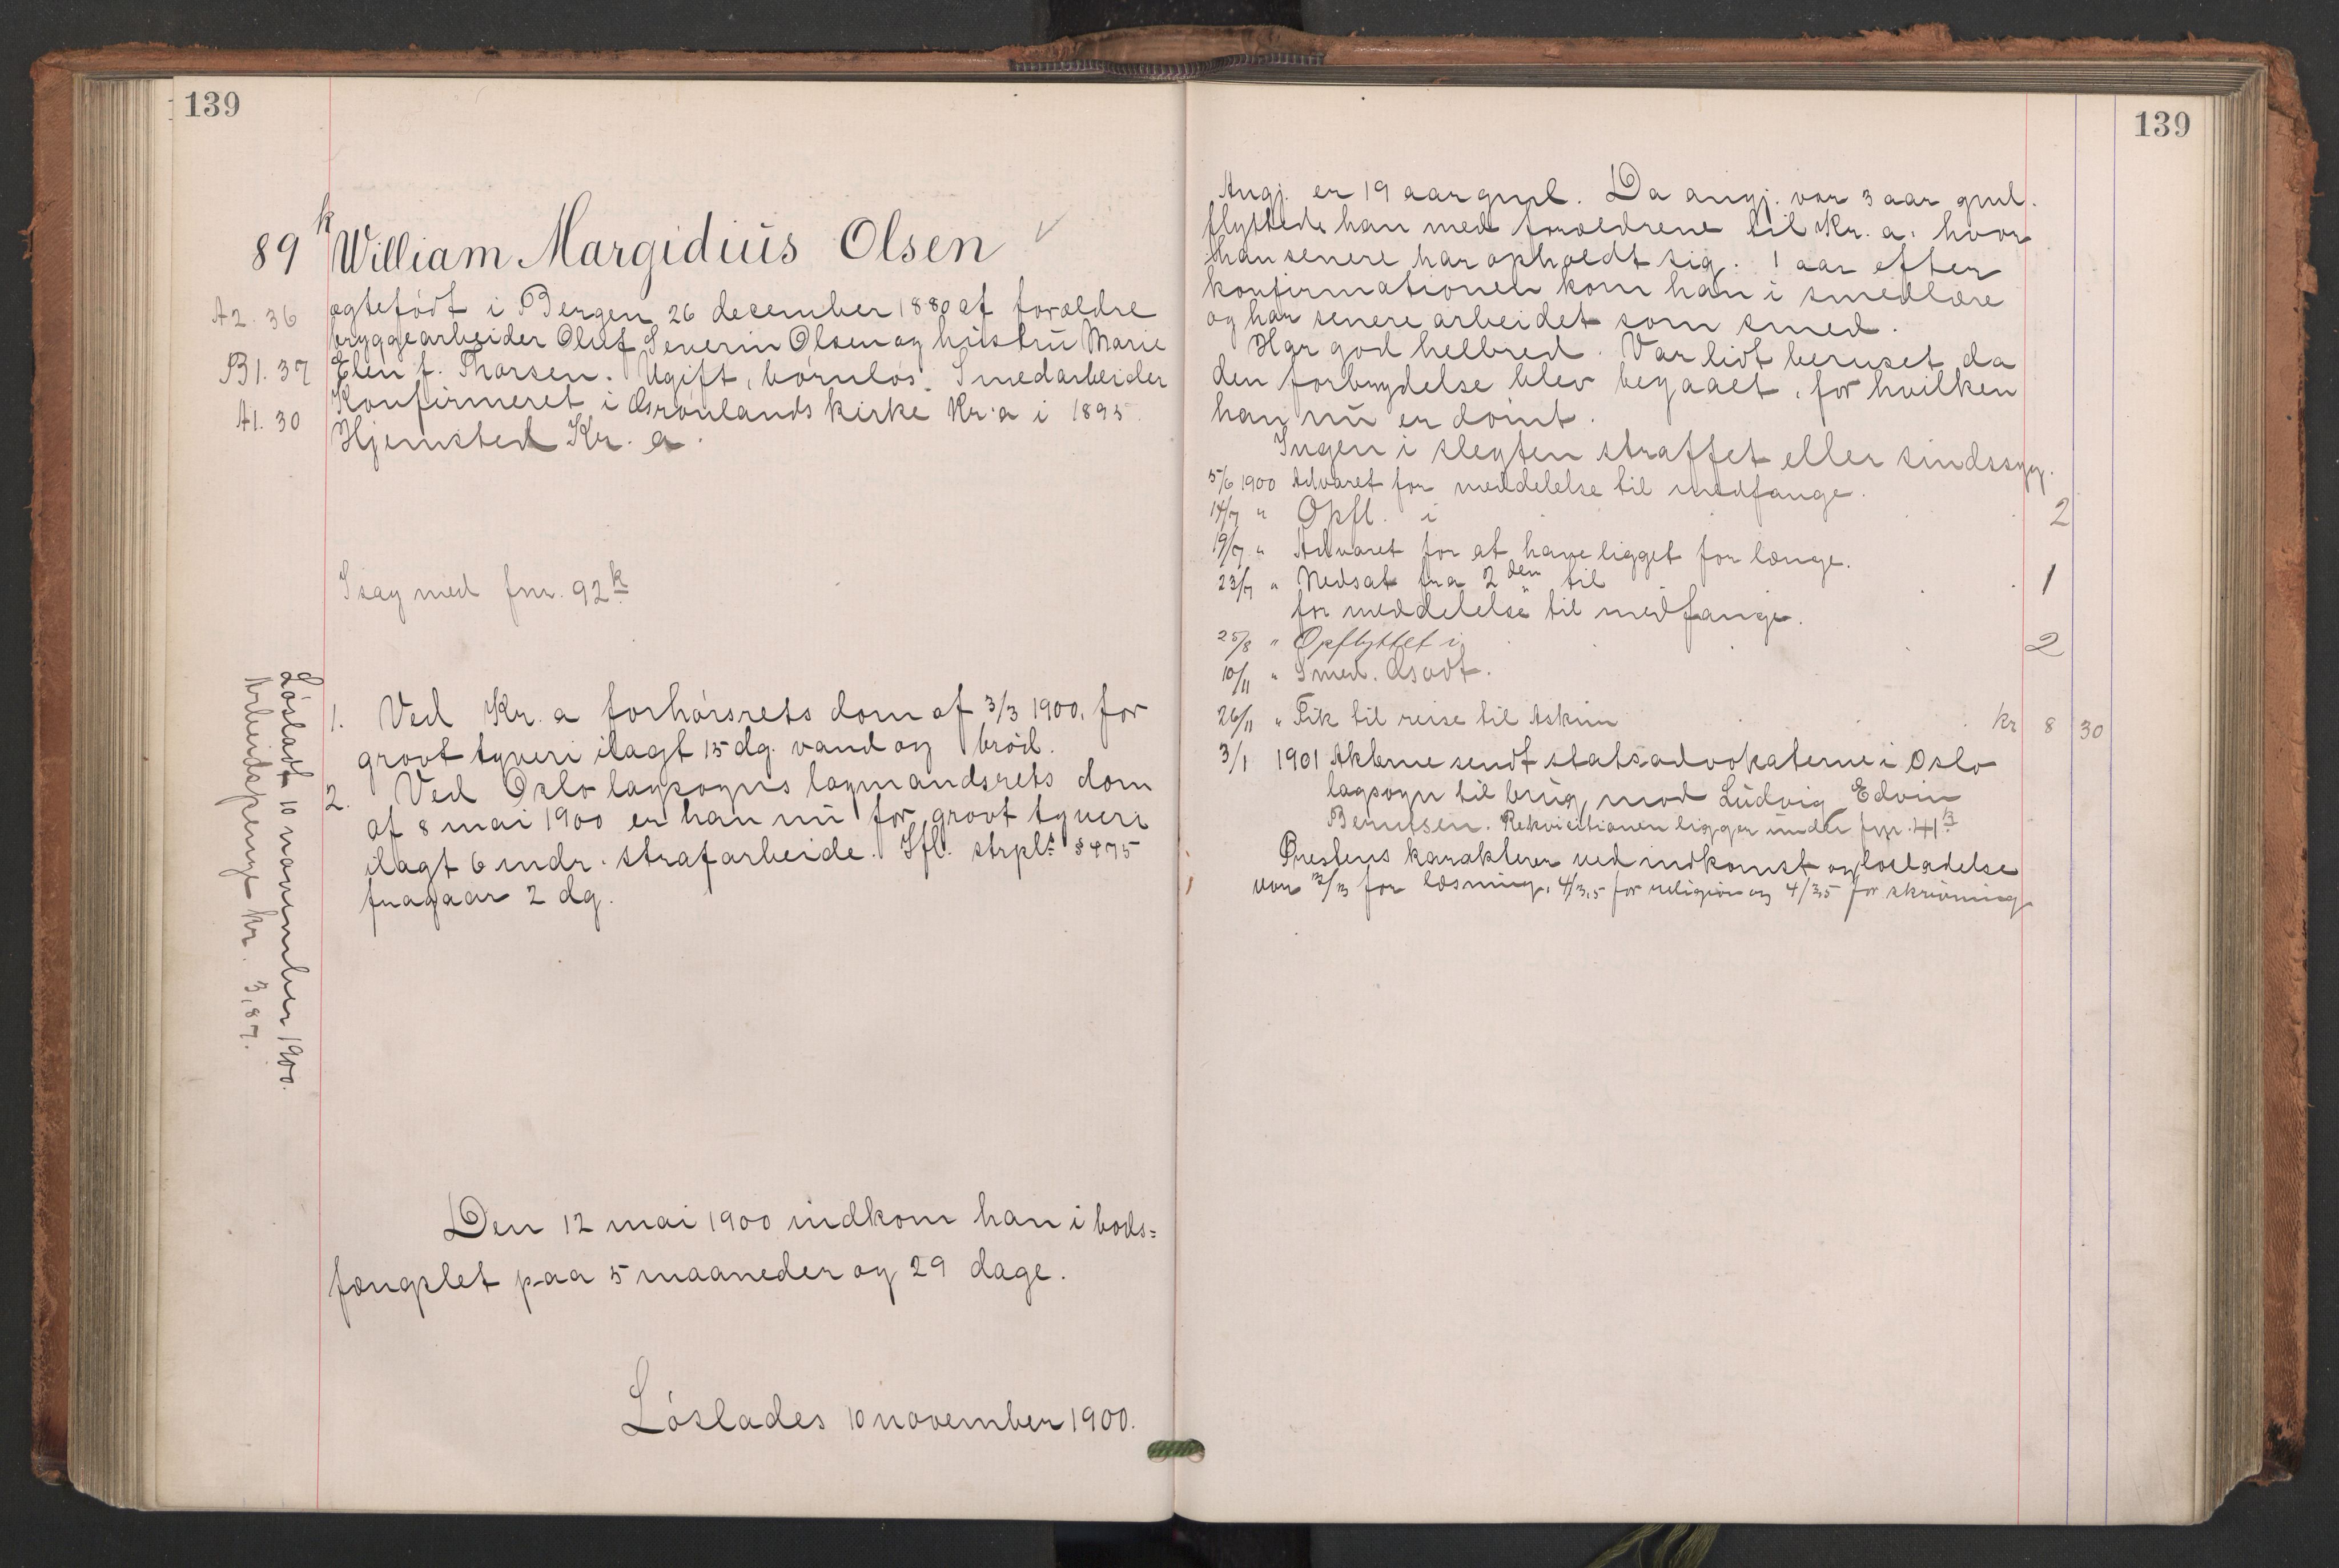 139
89 k William Margidius Olsen ✓
A2. 36
B1. 37
A1. 30
ægtefødt i Bergen 26 december 1880 af forældre
bryggearbeider Oluf Severin Olsen og hustru Marie
Elen f. Thorsen. Ugift, børnløs. Smedarbeider
Konfirmeret i Grønlands kirke Kr.a i 1895.
Hjemsted Kr. a.
I sag med fnr. 92 k
Løsladt 10 november 1900.
Arbeidspenge kr. 3,87.
1. Ved Kr. a forhørsrets dom af 3/3 1900, for
grovt tyveri ilagt 15 dg. vand og brød.
2. Ved Oslo lagsogns lagmandsrets dom
af 8 mai 1900 er han nu for grovt tyveri
ilagt 6 mdr. strafarbeide. Ifl. strpl. § 475
fragaar 2 dg.
Den 12 mai 1900 indkom han i bods=
fængslet paa 5 maaneder og 29 dage.
Løslades 10 november 1900.
139
Angj. er 19 aar gml. Da angj. var 3 aar gml.
flyttede han med forældrene til Kr. a. hvor
han senere har opholdt sig. 1 aar efter
konfirmationen kom han i smedlære
og har senere arbeidet som smed.
Har god helbred. Var lidt beruset da
den forbrydelse blev begaaet, for hvilken
han nu er dømt.
Ingen i slegten straffet eller sindssyg.
5/6 1900 Advaret for meddelelse til medfange.
14/7 " Opfl. i 2
19/7 " Advaret for at have ligget for længe.
23/7 " Nedsat fra 2 den til 1
for meddelelse til medfange.
25/8 " Opflyttet i 2
10/11 " Smed. Godt.
26/11 " Fik til reise til Askim kr 8 30
3/1 1901 Akterne sendt statsadvokaterne i Oslo
lagsogn til brug mod Ludvig Edvin
Berntsen. Rekvisitionen ligger under fnr. 41
Prestens karakterer ved indkomst og løsladelse
var 3/3 for læsning, 4/3,5 for religion og 4/3,5 for skrivning